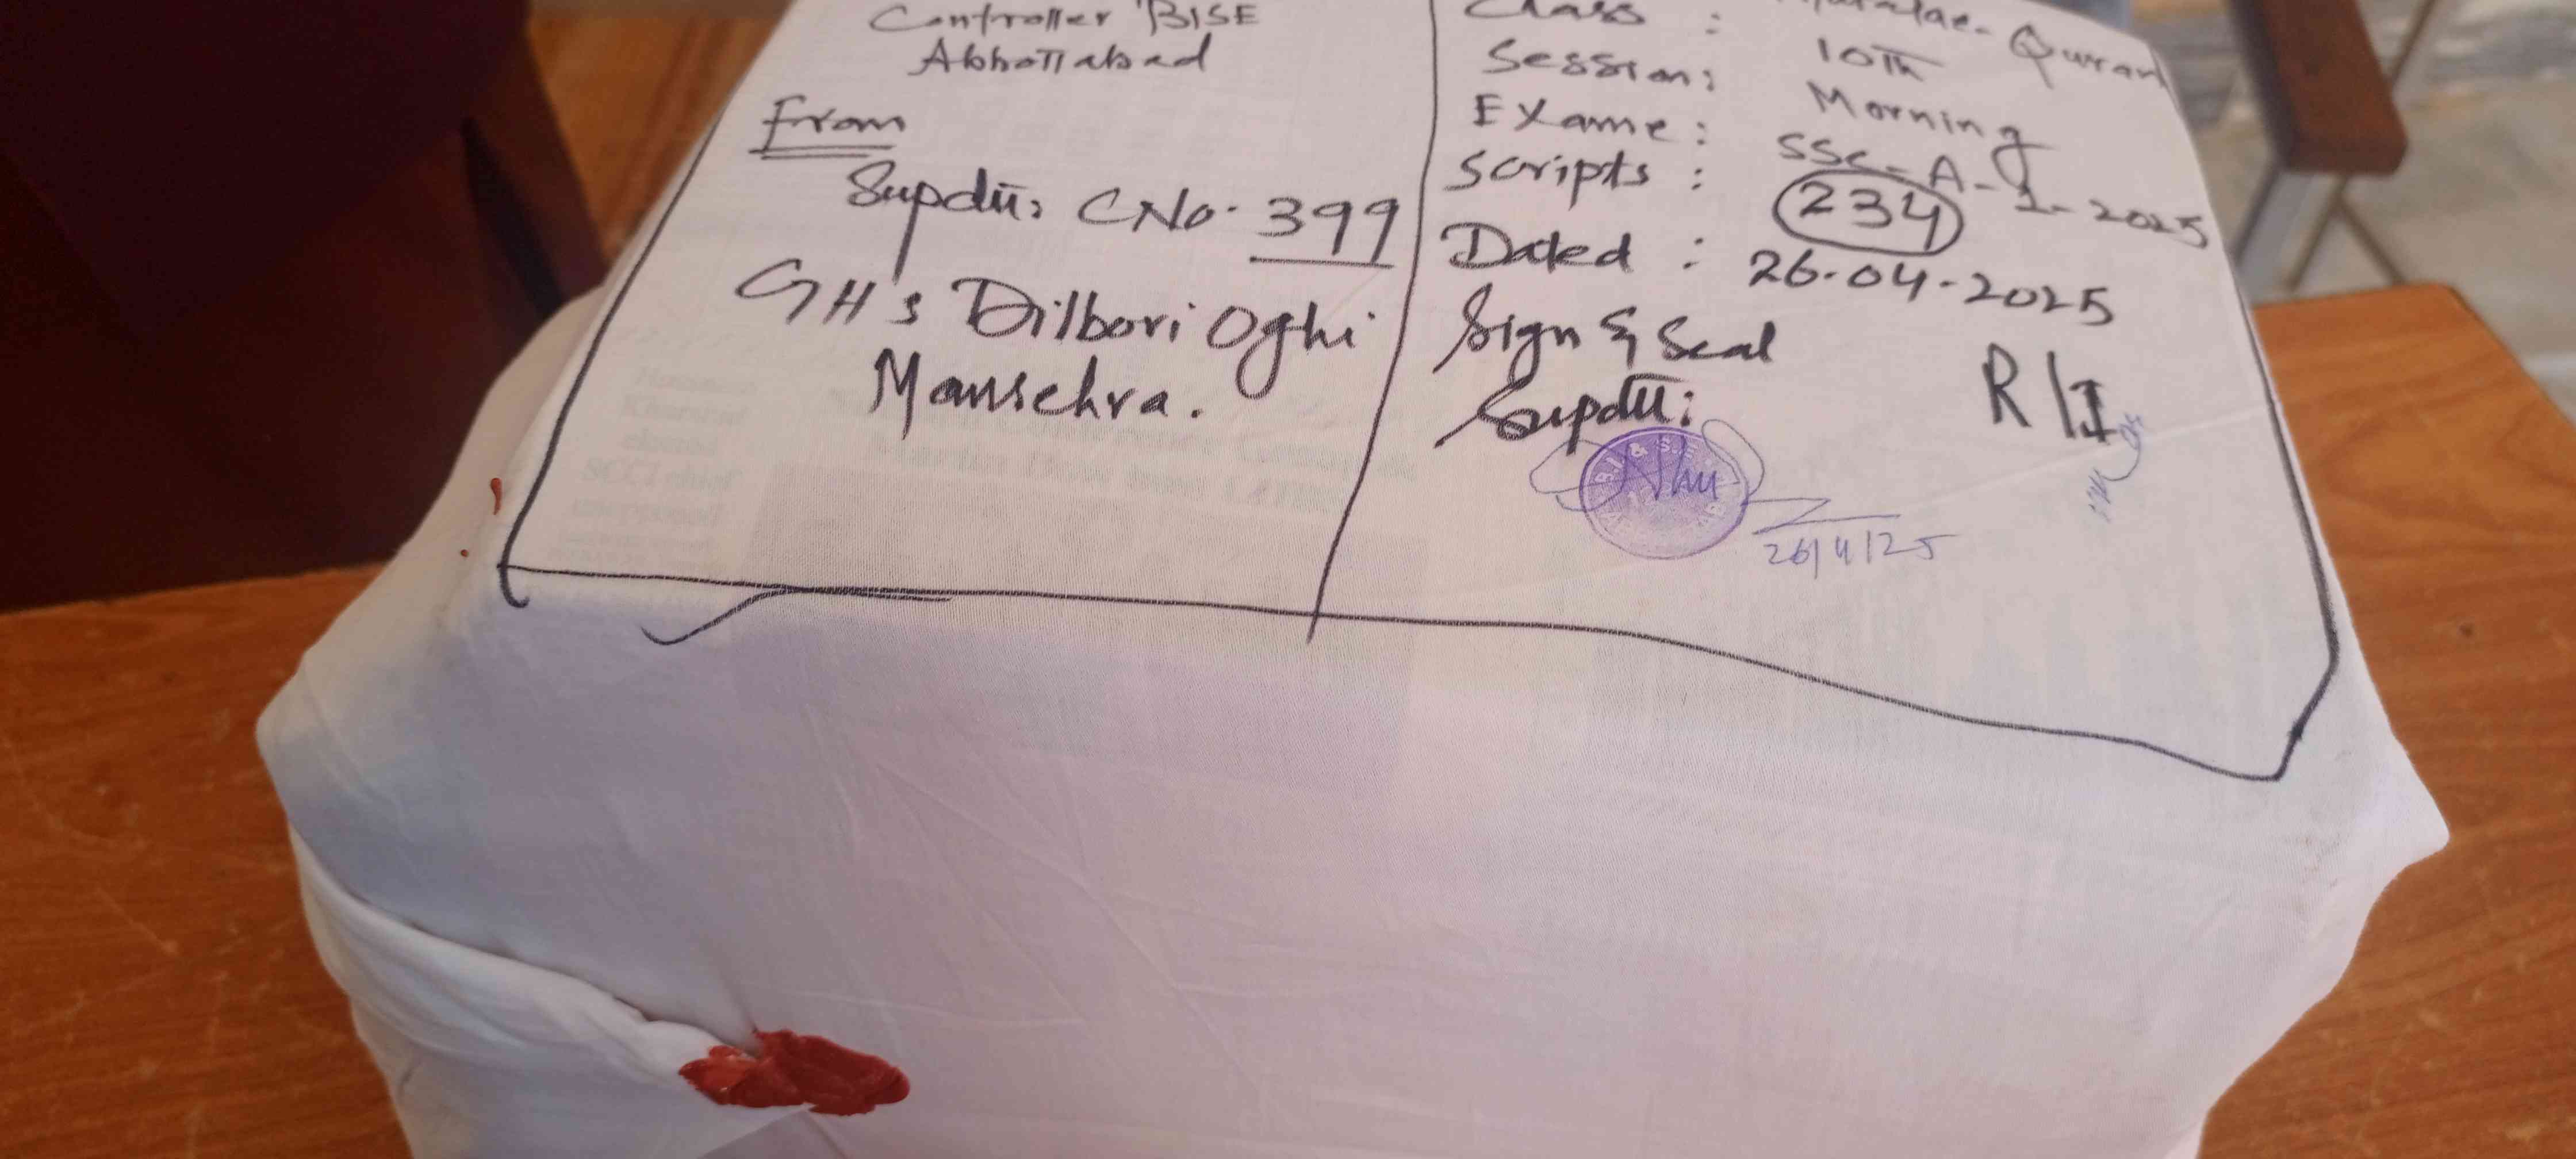 Controller BISE
Abbottabad
From
Supdtt: C No. 399
GHS Dilbori Oghi
Mansehra.
Quran
Class : 10Th
Session: Morning
Exame: SSC-A-1-2025
Scripts : 234
Dated : 26-04-2025
Sign & Seal
Supdtt:
R/I
B.I & S.E
26/4/25